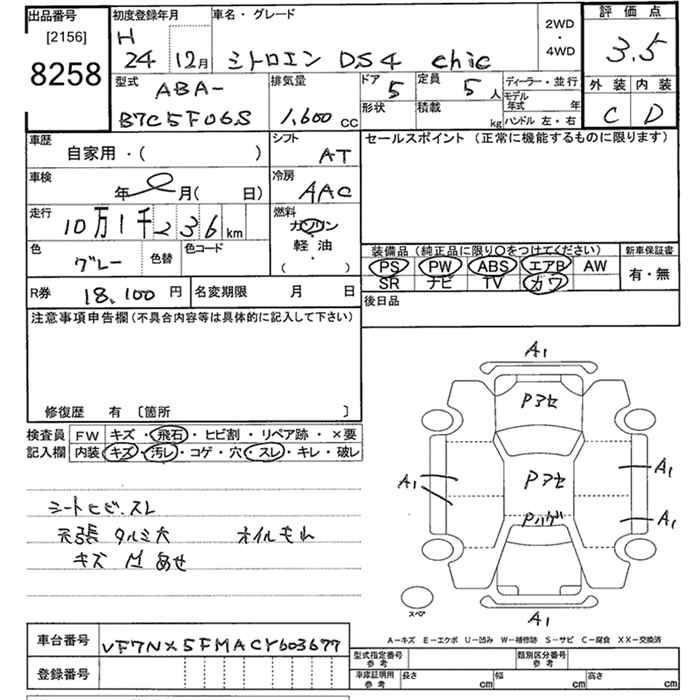 出品番号
[2156]
8258
初度登録年月
H
24 12月
車名・グレード
シトロエン DS4 chic
2WD
・
4WD
評価点
3.5
外装 内装
C D
型式
ABA-
B7C5F06S
排気量
1,600 cc
ドア
5
定員
5 人
形状
積載
kg
ディーラー・並行
モデル年式 年
ハンドル 左・右
車歴
自家用・( )
シフト
AT
車検
年 月( 日)
冷房
AAC
走行
10万1千236km
燃料
ガソリン
軽油
( ・ )
色
グレー
色替
色コード
セールスポイント (正常に機能するものに限ります)
装備品 (純正品に限り○をつけてください)
PS PW ABS エアB AW
SR ナビ TV カワ
新車保証書
有・無
R券 18,100 円
名変期限 月 日
後日品
注意事項申告欄 (不具合内容等は具体的に記入して下さい)
修復歴 有 〔箇所 〕
検査員
記入欄
FW キズ・飛石・ヒビ割・リペア跡・×要
内装 キズ・汚レ・コゲ・穴・スレ・キレ・破レ
シートヒビ.スレ
天張タルミ大 オイルもれ
キズ M あせ
A1
Pアセ
Pアセ
Pハゲ
A1
A1
A1
A1
スペア
A-キズ E-エクボ U-凹み W-補修跡 S-サビ C-腐食 XX-交換済
車台番号
VF7NX5FMACY603677
登録番号
型式指定番号
参考
類別区分番号
参考
車庫証明用
参考
長さ cm
幅 cm
高さ cm